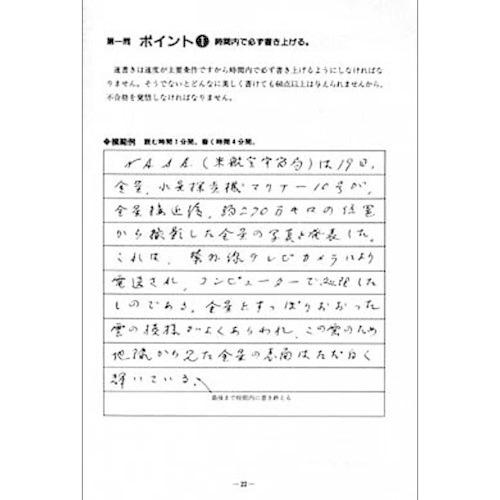 第一問 ポイント❶ 時間内で必ず書き上げる。
速書きは速度が主要条件ですから時間内で必ず書き上げるようにしなければな
りません。そうでないとどんなに美しく書けても60点以上は与えられませんから、
不合格を覚悟しなければなりません。
◆模範例 読む時間1分間。書く時間4分間。
NASA(米航空宇宙局)は19日、
金星、水星探査機マリナー10号が、
金星接近後、約270万キロの位置
から撮影した金星の写真を発表した。
これは、紫外線テレビカメラにより
電送され、コンピューターで処理した
ものである。金星をすっぽりおおった
雲の模様がよくあらわれ、この雲のため
地球から見た金星の表面はただ白く
輝いている。
最後まで時間内に書き終える
—22—